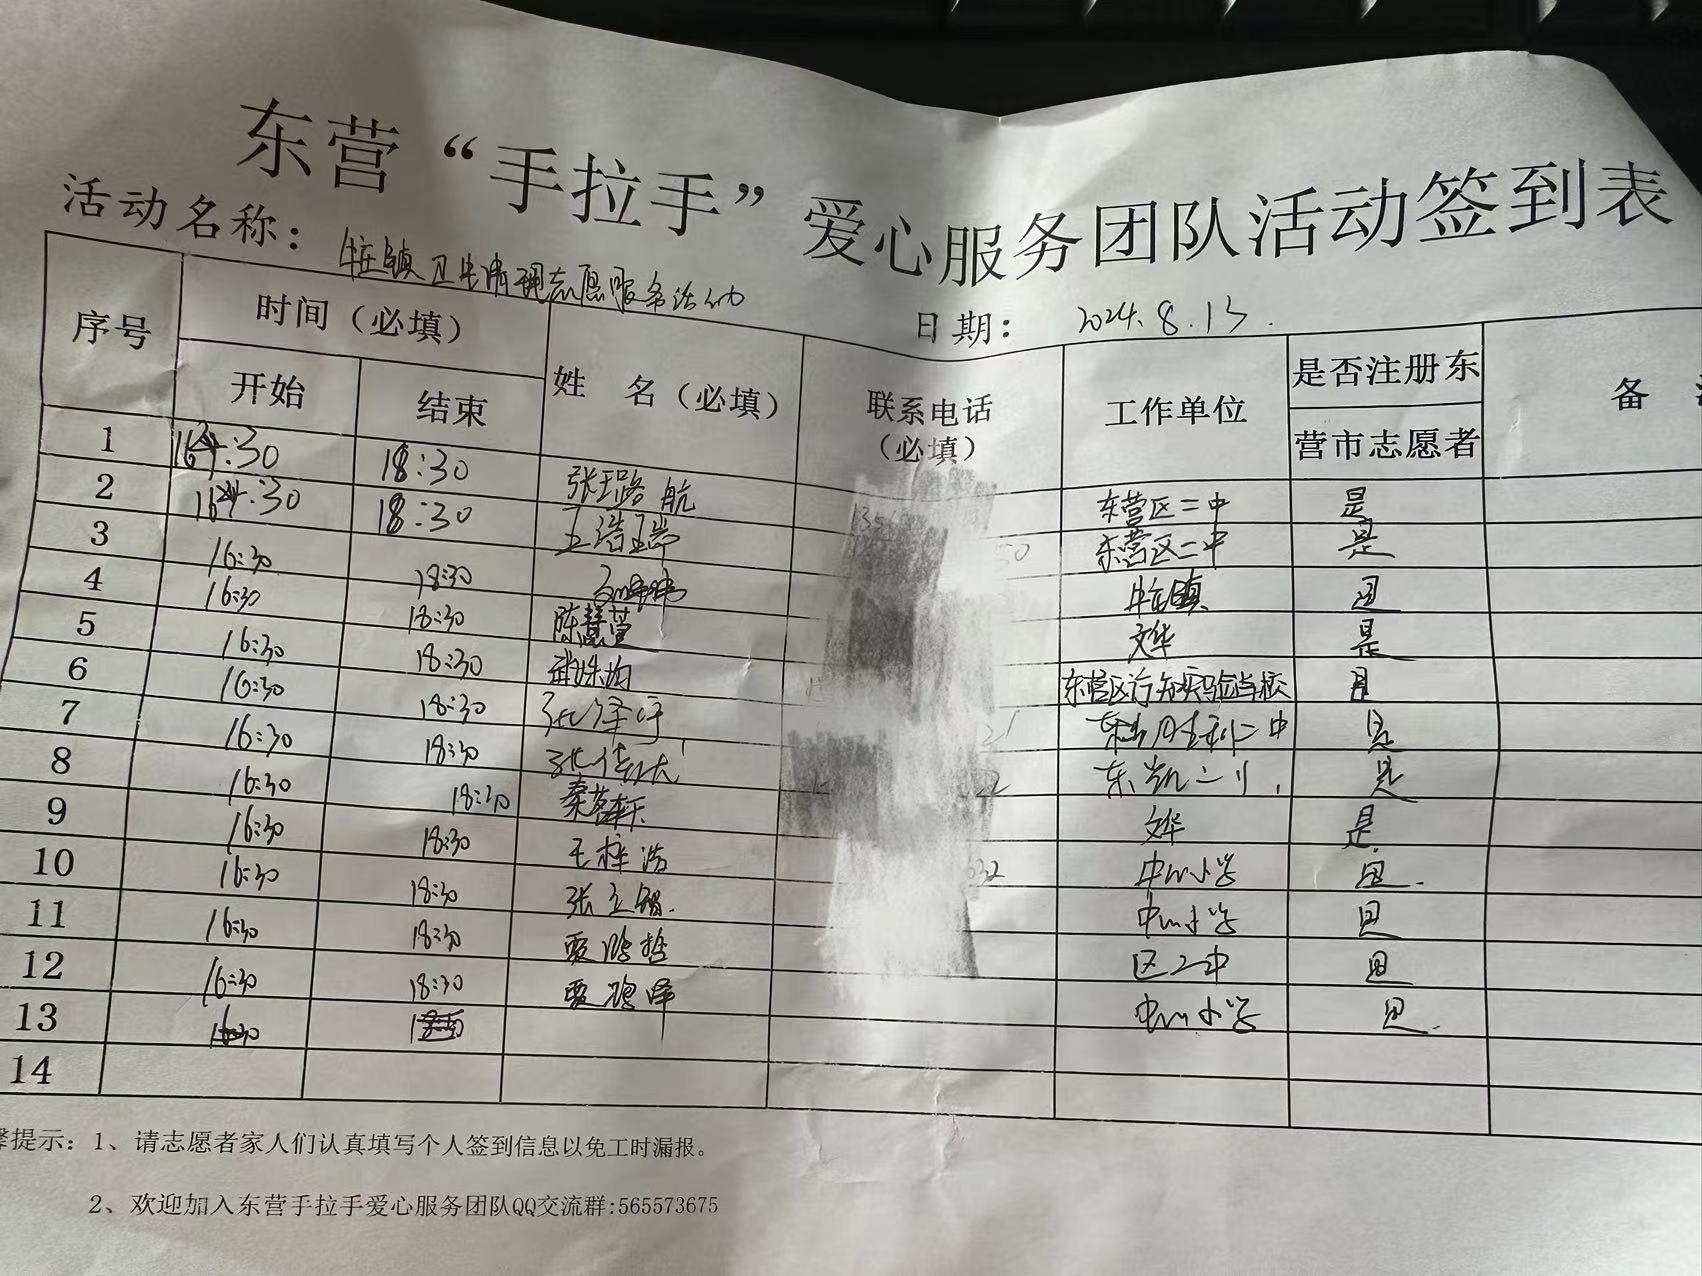 东营“手拉手”爱心服务团队活动签到表
活动名称：牛庄镇卫生清理志愿服务活动
日期： 2024.8.13.
序号 时间（必填） 姓 名（必填） 联系电话（必填） 工作单位 是否注册东营市志愿者 备
开始 结束
1 16:30 18:30 张珏路航 东营区二中 是
2 16:30 18:30 王浩瑞 东营区二中 是
3 16:30 18:30 牛庄镇 是
4 16:30 18:30 陈慧萱 文华 是
5 16:30 18:30 东营区行知实验学校 是
6 16:30 18:30 张泽宇 胜利二中 是
7 16:30 18:30 东凯二 是
8 16:30 18:30 秦茗轩 文华 是
9 16:30 18:30 王梓浩 中心小学 是.
10 16:30 18:30 张立智. 中心小学 是
11 16:30 18:30 贾鹏哲 区二中 是
12 16:30 18:30 贾 中心小学 是.
13
14
提示：1、请志愿者家人们认真填写个人签到信息以免工时漏报。
2、欢迎加入东营手拉手爱心服务团队QQ交流群:565573675